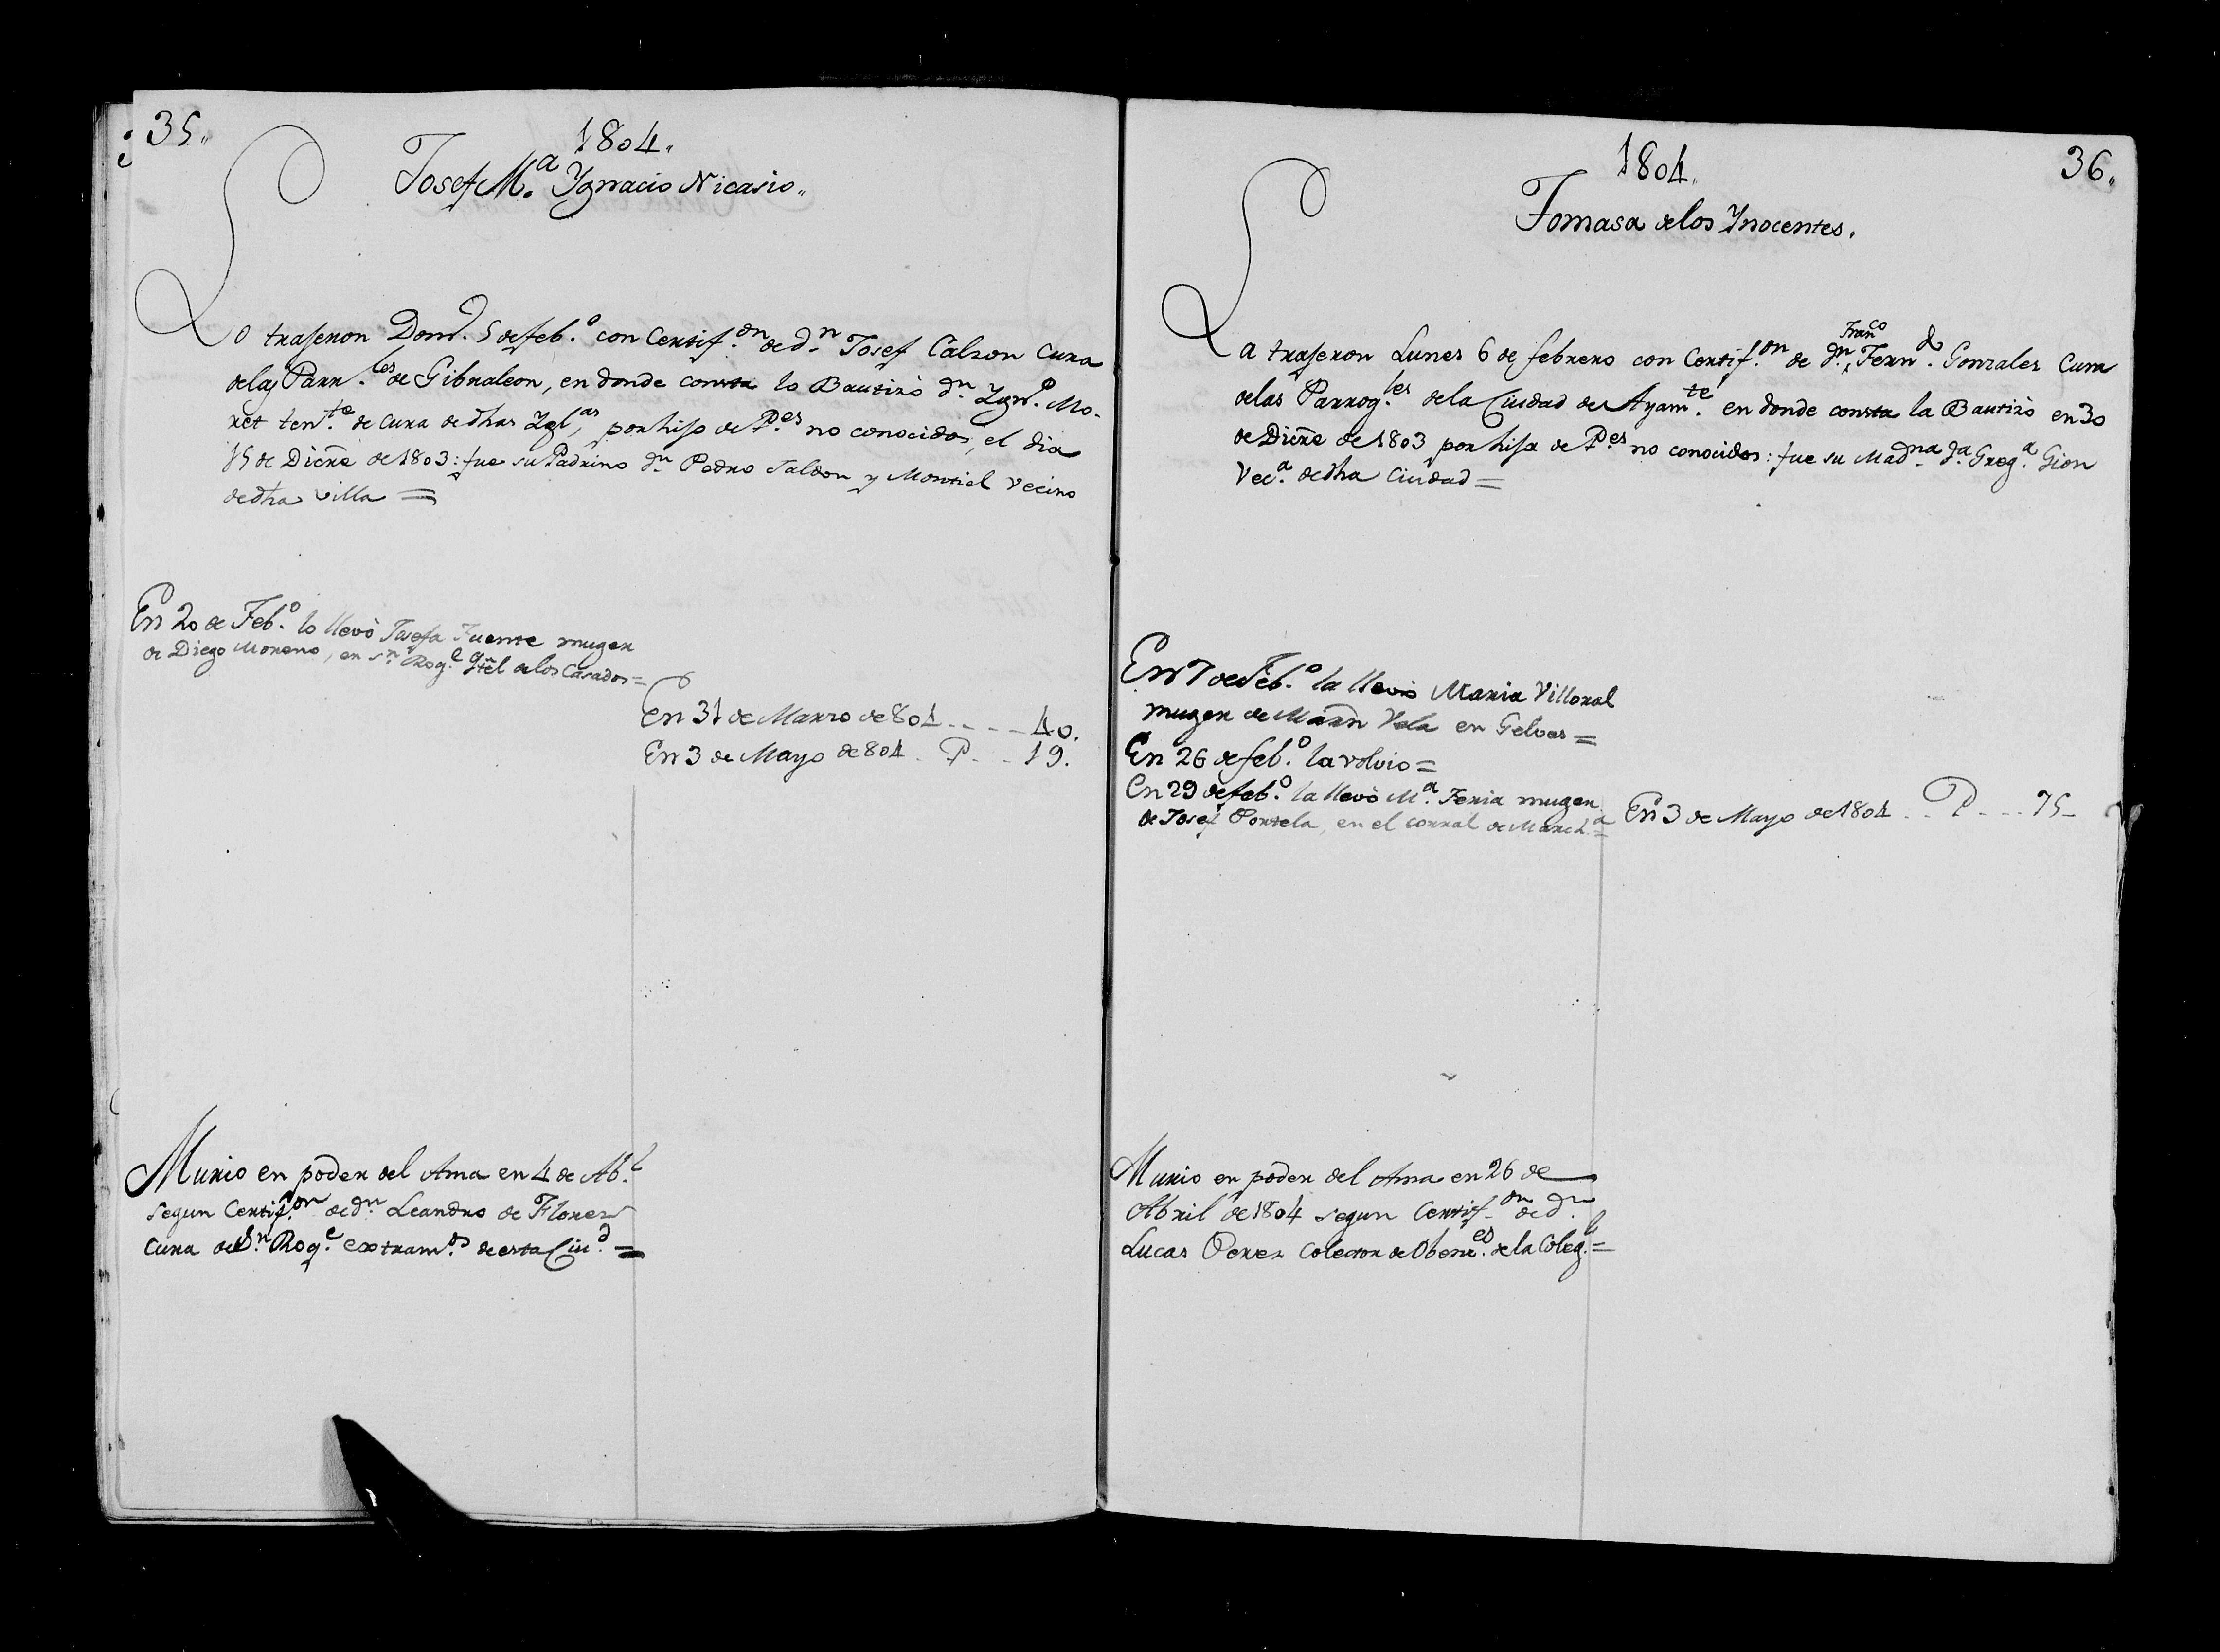 35.
1804.
Josef M.a Ygnacio Nicasio.
Lo trajeron Dom.o 5 de feb.o con Certif.on de d.n Josef Calzon Cura
de las Parr.les de Gibraleon, en donde consta lo Bautizò d.n Ygn.o Mo-
ret ten.te de cura de dhas Ygl.as, por hijo de P.es no conocidos, el dia
15 de Dicrē de 1803: fue su Padrino d.n Pedro Saldon y Montiel vecino
de dha villa =
En 20 de Feb.o lo llevò Josefa Fuente muger
de Diego Moreno, en S.n Roq.e qtēl de los Casados =
En 31 de Marzo de 804 - - - - 40.
En 3 de Mayo de 804 - P. - - 19.
Murio en poder del Ama en 4 de Ab.l
segun Certif.on de d.n Leandro de Flores
cura de S.n Roq.e extram.os de esta Ciu.d =
1804.
36.
Tomasa de los Ynocentes.
Franco
La trajeron Lunes 6 de febrero con Certif.on de d.n Fern.do Gonzales Cura
de las Parroq.les de la Ciudad de Ayam.te en donde consta la Bautizò en 30
de Dicrē de 1803 por hija de P.es no conocidos: fue su Mad.na d.a Greg.a Gion
Vec.a de dha Ciudad =
En 7 de Feb.o la llevò Maria Villoral
muger de Marn̄ Vela en Gelves =
En 26 de feb.o la volvio =
En 29 de feb.o la llevò M.a Feria muger
de Josef Portela, en el corral de March.a =
En 3 de Mayo de 1804 - - P - - - 75 -
Murio en poder del Ama en 26 de
Abril de 1804 segun Certif.on de d.n
Lucas Perez Colector de Obenc.es de la Coleg.l =